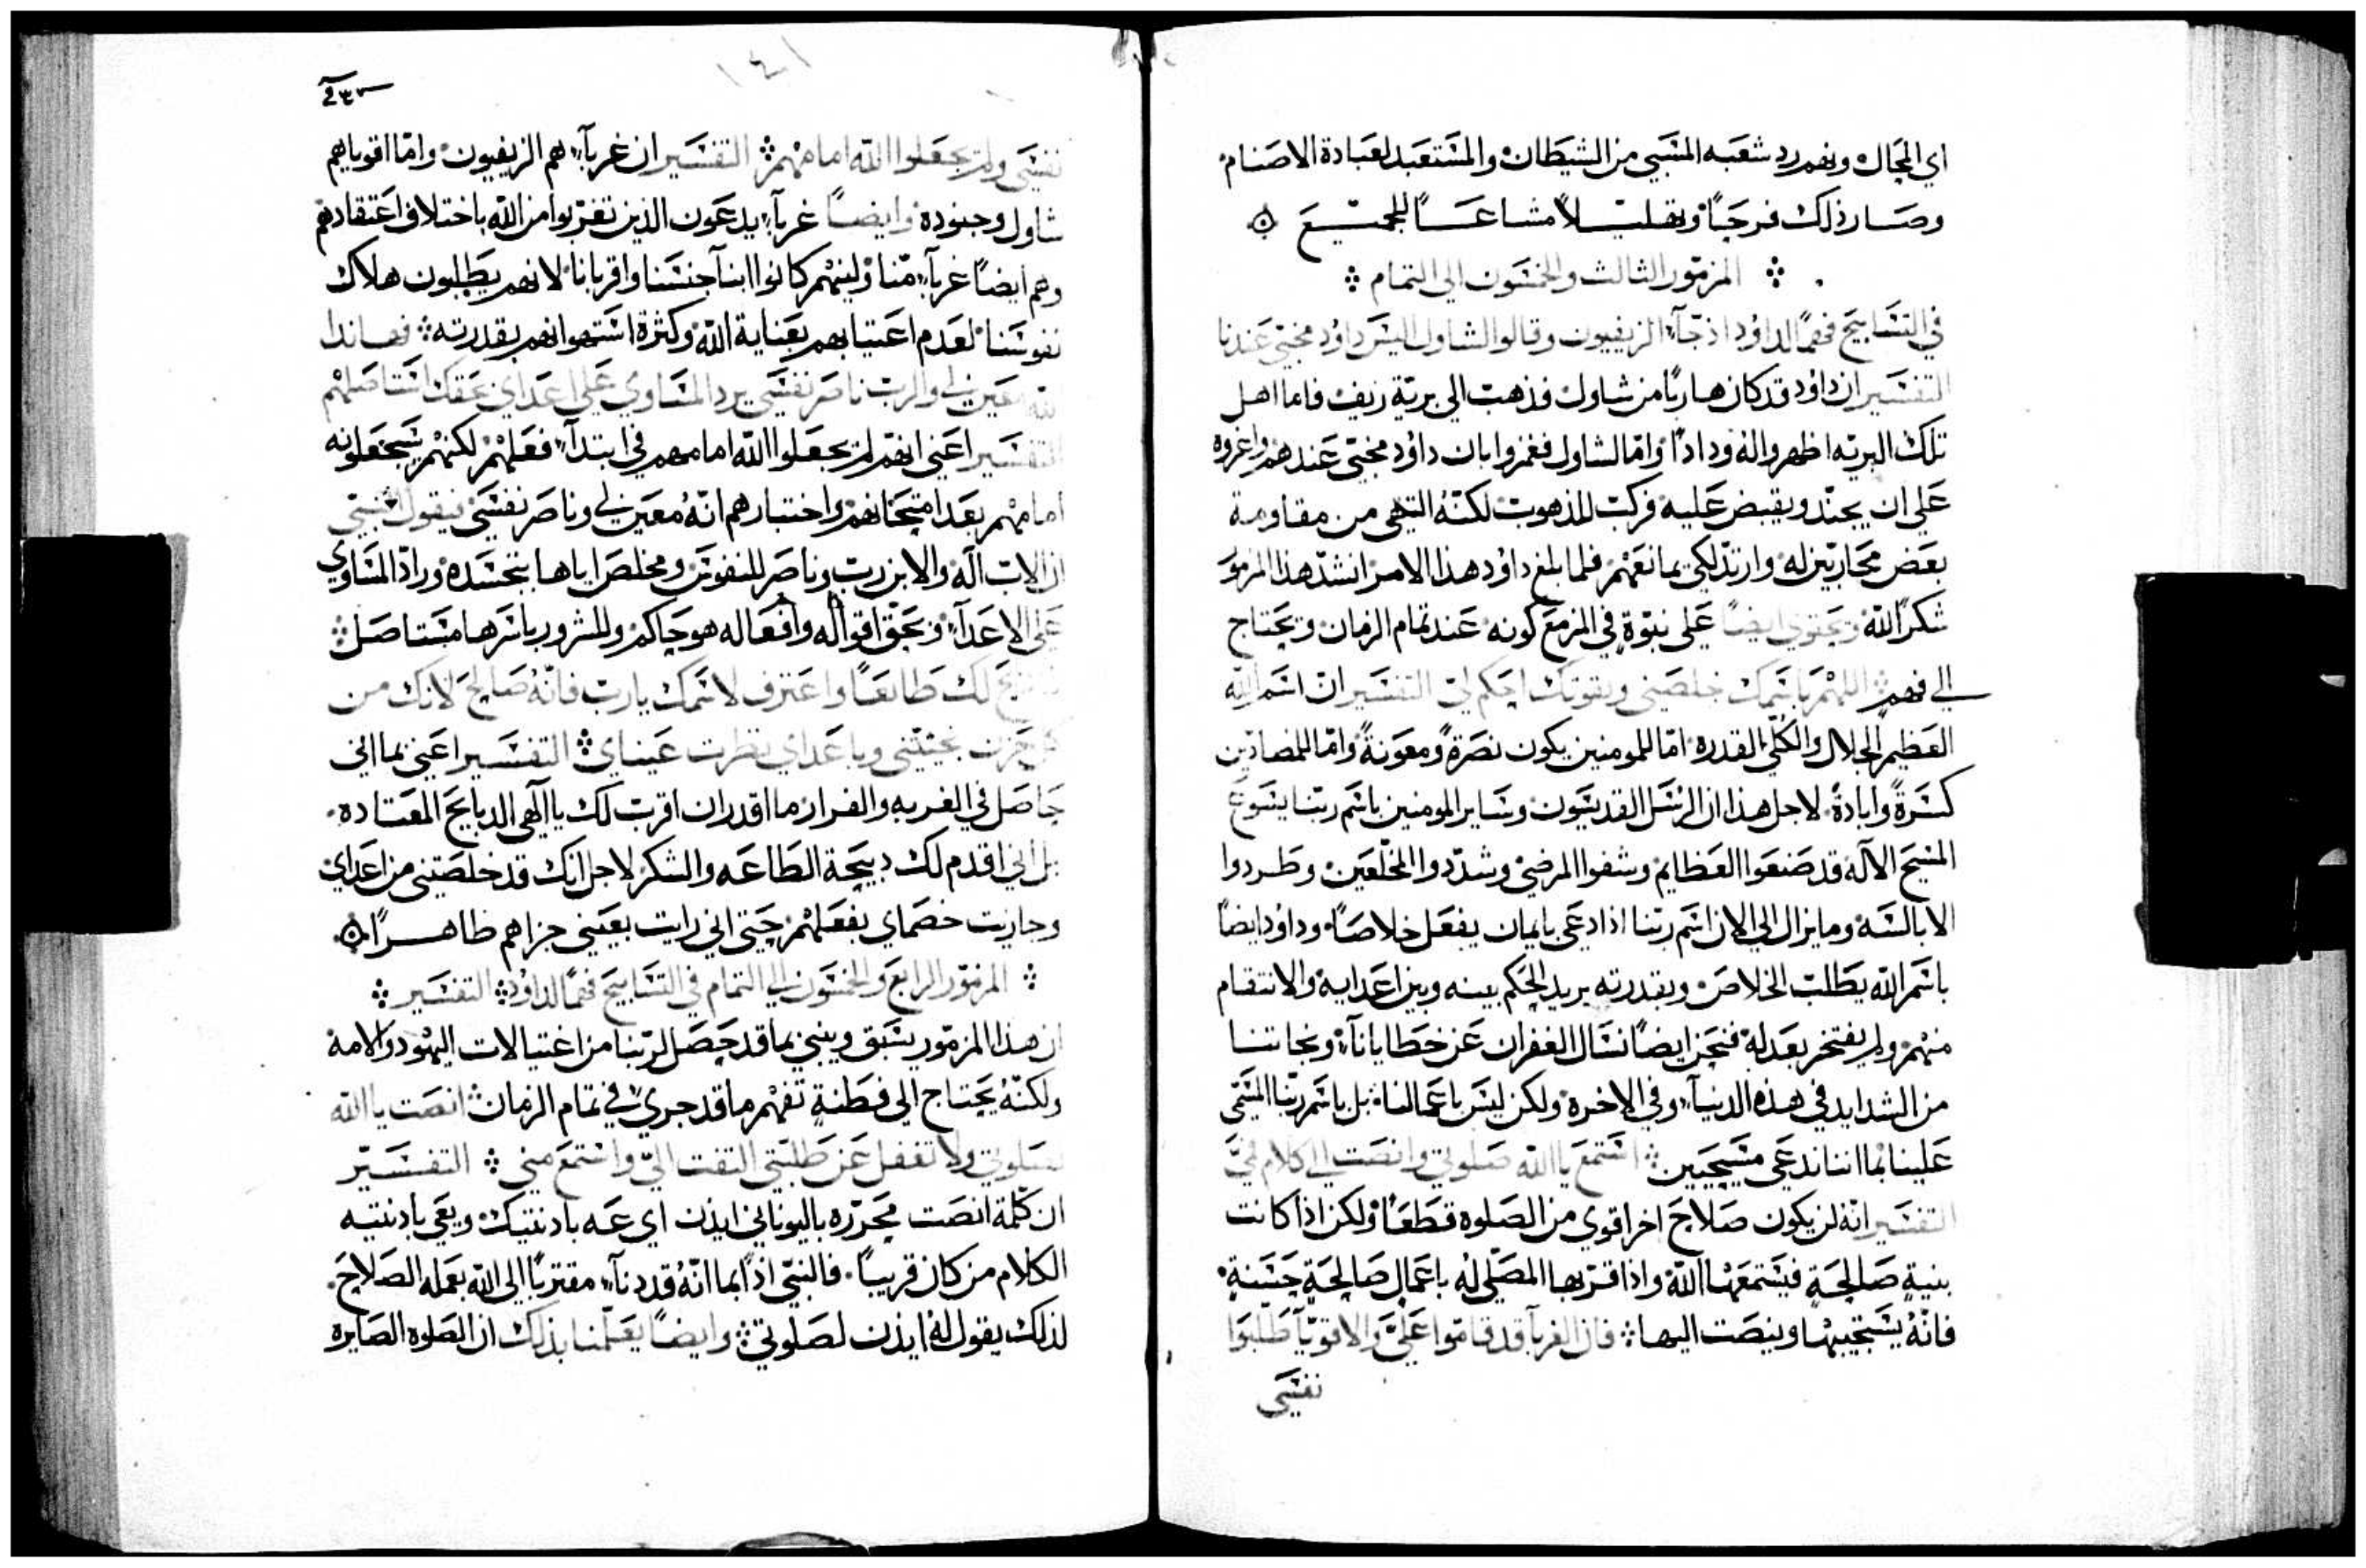 اي المحال ونهم رد شعبه المسبي من الشيطان والمستعبد لعبادة الاصنام
وصار ذلك فرحًا وتهليلاً مشاعًا للجميع
المزمور الثالث والخمسون الى التمام
في التسابيح فهمًا لداود اذ جآء الزيفيون وقالوا لشاول اليس داود مختبي عندنا
التفسير ان داود قد كان هاربًا من شاول فذهب الى برية زيف فاما اهل
تلك البريه اظهروا له ودادًا واما لشاول فغمزوا بان داود مختبي عندهم واغروه
على ان يجند ويقبض عليه فركب للذهوب لكنه التهى من مقاومة
بعض محاربين له وارتد لكي يمانعهم فلما بلغ داود هذا الامر انشد هذا المزمور
شكرًا لله ويحتوي ايضًا على نبوة في المزمع كونه عند تمام الزمان ويحتاج
الى فهم اللهم باسمك خلصني وبقوتك احكم لي التفسير ان اسم الله
العظيم الجلال والكلي القدره اما للمومنين يكون نصرةً ومعونةً واما للمضادين
كسرةً وابادةً لاجل هذا ان الرسل القديسون وساير المومنين باسم ربنا يسوع
المسيح الاله قد صنعوا العظايم وشفوا المرضى وشددوا المخلعين وطردوا
الابالسه وما يزال الى الان اسم ربنا اذا دعى بايمان يفعل خلاصًا وداود ايضًا
باسم الله يطلب الخلاص وبقدرته يريد الحكم بينه وبين اعدايه والانتقام
منهم ولم يفتخر بعدله فنحن ايضًا نسال الغفران عن خطايانآ ونجاتنا
من الشدايد في هذه الدنيآ وفي الاخرة ولكن ليس باعمالنا بل باسم ربنا المسمى
علينا بما اننا ندعى مسيحيين استمع يا الله صلوتي وانصت الى كلام فمي
التفسير انه لن يكون صلاح اخر اقوى من الصلوه قطعًا ولكن اذا كانت
بنية صالحة فيستمعها الله واذا قربها المصلي له باعمال صالحة حسنة
فانه يستجيبها وينصت اليها فان الغربآ قد قاموا علي والاقويآ طلبوا
نفسي
نفسي ولم يجعلوا الله امامهم التفسير ان غربآ هم الزيفيون واما اقوياهم
شاول وجنوده وايضًا غربآ يدعون الذين تغربوا من الله باختلاف اعتقادهم
وهم ايضًا غربآ منا وليتهم كانوا ابنآ جنسنا واقربانا لانهم يطلبون هلاك
نفوسنا لعدم اعتيابهم بعناية الله وكثرة اشتهوانهم بقدرته فهاندا
الله معين لي والرب ناصر نفسي يرد المساوي على اعداي بحقك استاصلهم
التفسير اعني انهم لم يجعلوا الله امامهم في ابتدآ فعلهم لكنهم سيجعلونه
امامهم بعد امتحانهم واختبارهم انه معين لي وناصر نفسي فيقول النبي
ان الاب آله والابن رب وناصر للنفوس ومخلص اياها بتجسده وراد المساوي
على الاعدآ وبحق اقواله وافعاله هو حاكم وللشرور باسرها مستاصل
فاذبح لك طايعًا واعترف لاسمك يارب فانه صالح لانك من
كل حزن نجيتني وباعداي نظرت عيناي التفسير اعني بما اني
حاصل في الغربه والفرار ما اقدر ان اقرب لك يا الهي الدبايح المعتاده
بل اني اقدم لك دبيحة الطاعه والشكر لاجل انك قد خلصتني من اعداي
وجازيت خصماي بفعلهم حتى اني رايت بعيني جزاهم ظاهرًا
المزمور الرابع والخمسون الى التمام في التسابيح فهمًا لداود التفسير
ان هذا المزمور يسبق وينبي بما قد حصل لربنا من اغتيالات اليهود والامه
ولكنه يحتاج الى فطنة تفهم ما قد جرى في تمام الزمان انصت يا الله
لصلوتي ولا تغفل عن طلبتي التفت الي واستمع مني التفسير
ان كلمة انصت محرره باليوناني ايذن اي عه بادنتيك ويعي بادنتيه
الكلام من كان قريبًا فالنبي اذًا بما انه قد دنآ مقتربًا الى الله بعمله الصلاح
لذلك يقول له ايذن لصلوتي وايضًا يعلمنا بذلك ان الصلوه الصايره